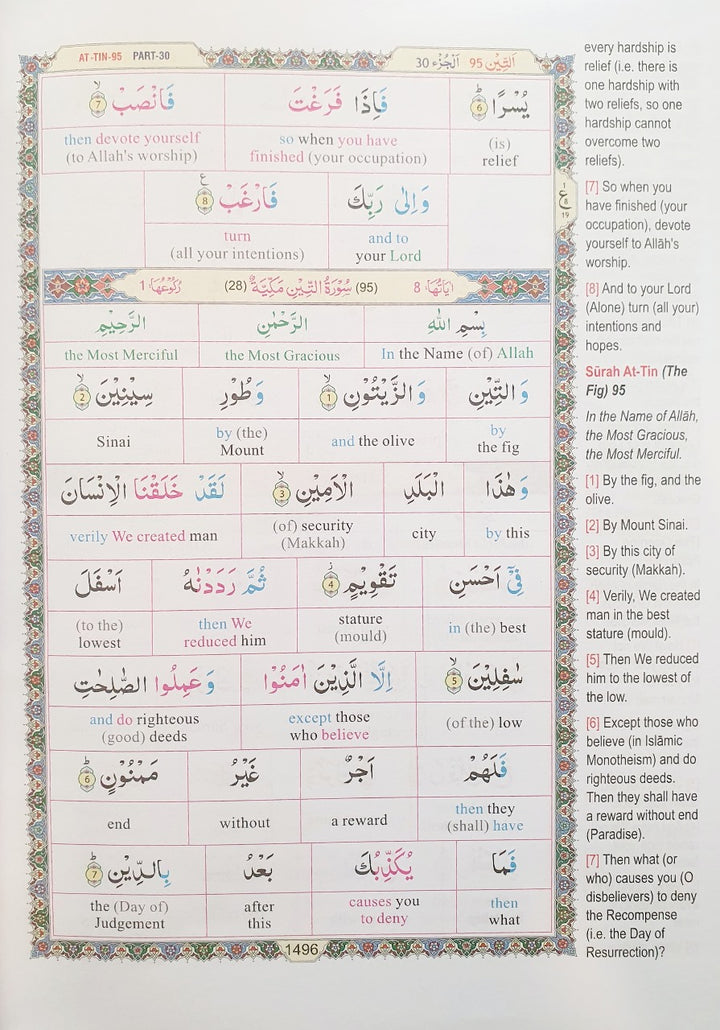 AT-TIN-95 PART-30
اَلتِّيْن 95 اَلْجُزْء 30
يُسْرًا 6 فَاِذَا فَرَغْتَ فَانْصَبْ 7
(is) relief so when you have finished (your occupation) then devote yourself (to Allah's worship)
وَاِلٰى رَبِّكَ فَارْغَبْ 8
and to your Lord turn (all your intentions)
اٰيَاتُهَا: 8 (95) سُوْرَةُ التِّيْنِ مَكِّيَّةٌ (28) رُكُوْعُهَا: 1
بِسْمِ اللهِ الرَّحْمٰنِ الرَّحِيْمِ
In the Name (of) Allah the Most Gracious the Most Merciful
وَالتِّيْنِ وَالزَّيْتُوْنِ 1 وَطُوْرِ سِيْنِيْنَ 2
by the fig and the olive by (the) Mount Sinai
وَهٰذَا الْبَلَدِ الْاَمِيْنِ 3 لَقَدْ خَلَقْنَا الْاِنْسَانَ
by this city (of) security (Makkah) verily We created man
فِيْٓ اَحْسَنِ تَقْوِيْمٍ 4 ثُمَّ رَدَدْنٰهُ اَسْفَلَ
in (the) best stature (mould) then We reduced him (to the) lowest
سٰفِلِيْنَ 5 اِلَّا الَّذِيْنَ اٰمَنُوْا وَعَمِلُوا الصّٰلِحٰتِ
(of the) low except those who believe and do righteous (good) deeds
فَلَهُمْ اَجْرٌ غَيْرُ مَمْنُوْنٍ 6
then they (shall) have a reward without end
فَمَا يُكَذِّبُكَ بَعْدُ بِالدِّيْنِ 7
then what causes you to deny after this the (Day of) Judgement
1496
ع
1
8
19
every hardship is
relief (i.e. there is
one hardship with
two reliefs, so one
hardship cannot
overcome two
reliefs).
[7] So when you
have finished (your
occupation), devote
yourself to Allāh's
worship.
[8] And to your Lord
(Alone) turn (all your)
intentions and
hopes.
Sūrah At-Tin (The
Fig) 95
In the Name of Allāh,
the Most Gracious,
the Most Merciful.
[1] By the fig, and the
olive.
[2] By Mount Sinai.
[3] By this city of
security (Makkah).
[4] Verily, We created
man in the best
stature (mould).
[5] Then We reduced
him to the lowest of
the low.
[6] Except those who
believe (in Islāmic
Monotheism) and do
righteous deeds.
Then they shall have
a reward without end
(Paradise).
[7] Then what (or
who) causes you (O
disbelievers) to deny
the Recompense
(i.e. the Day of
Resurrection)?